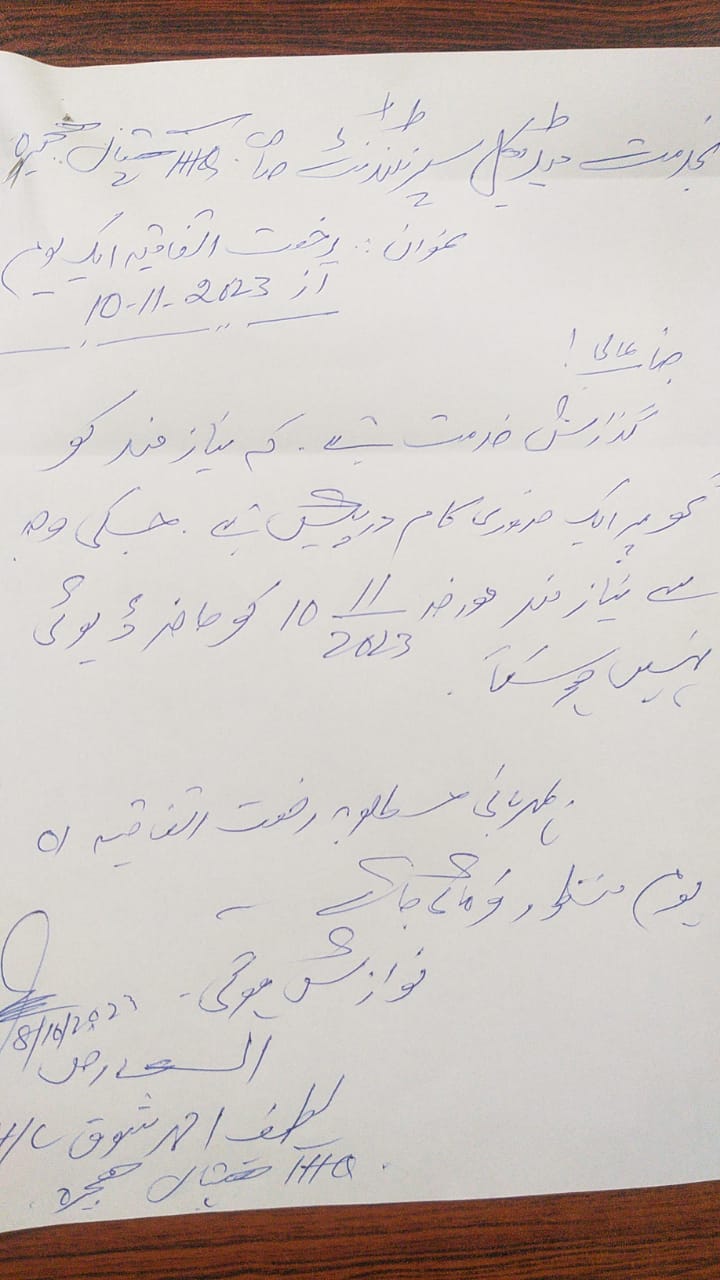 بخدمت میڈیکل سپرنٹنڈنٹ صاحب THQ ہسپتال ہجیرہ
عنوان :۔ رخصت اتفاقیہ ایک یوم
از 10-11-2023
جناب عالی !
گذارش خدمت ہے ۔ کہ نیاز مند کو
گھر پر ایک ضروری کام درپیش ہے ۔ جسکی وجہ
سے نیاز مند مورخہ 10 11/2023 کو حاضر ڈیوٹی
نہیں ہو سکتا ۔
بمہربانی مطلوبہ رخصت اتفاقیہ 01
یوم منظور فرمائی جائے ۔
نوازش ہوگی ۔
العارض
لطیف احمد
THQ ہسپتال ہجیرہ ۔